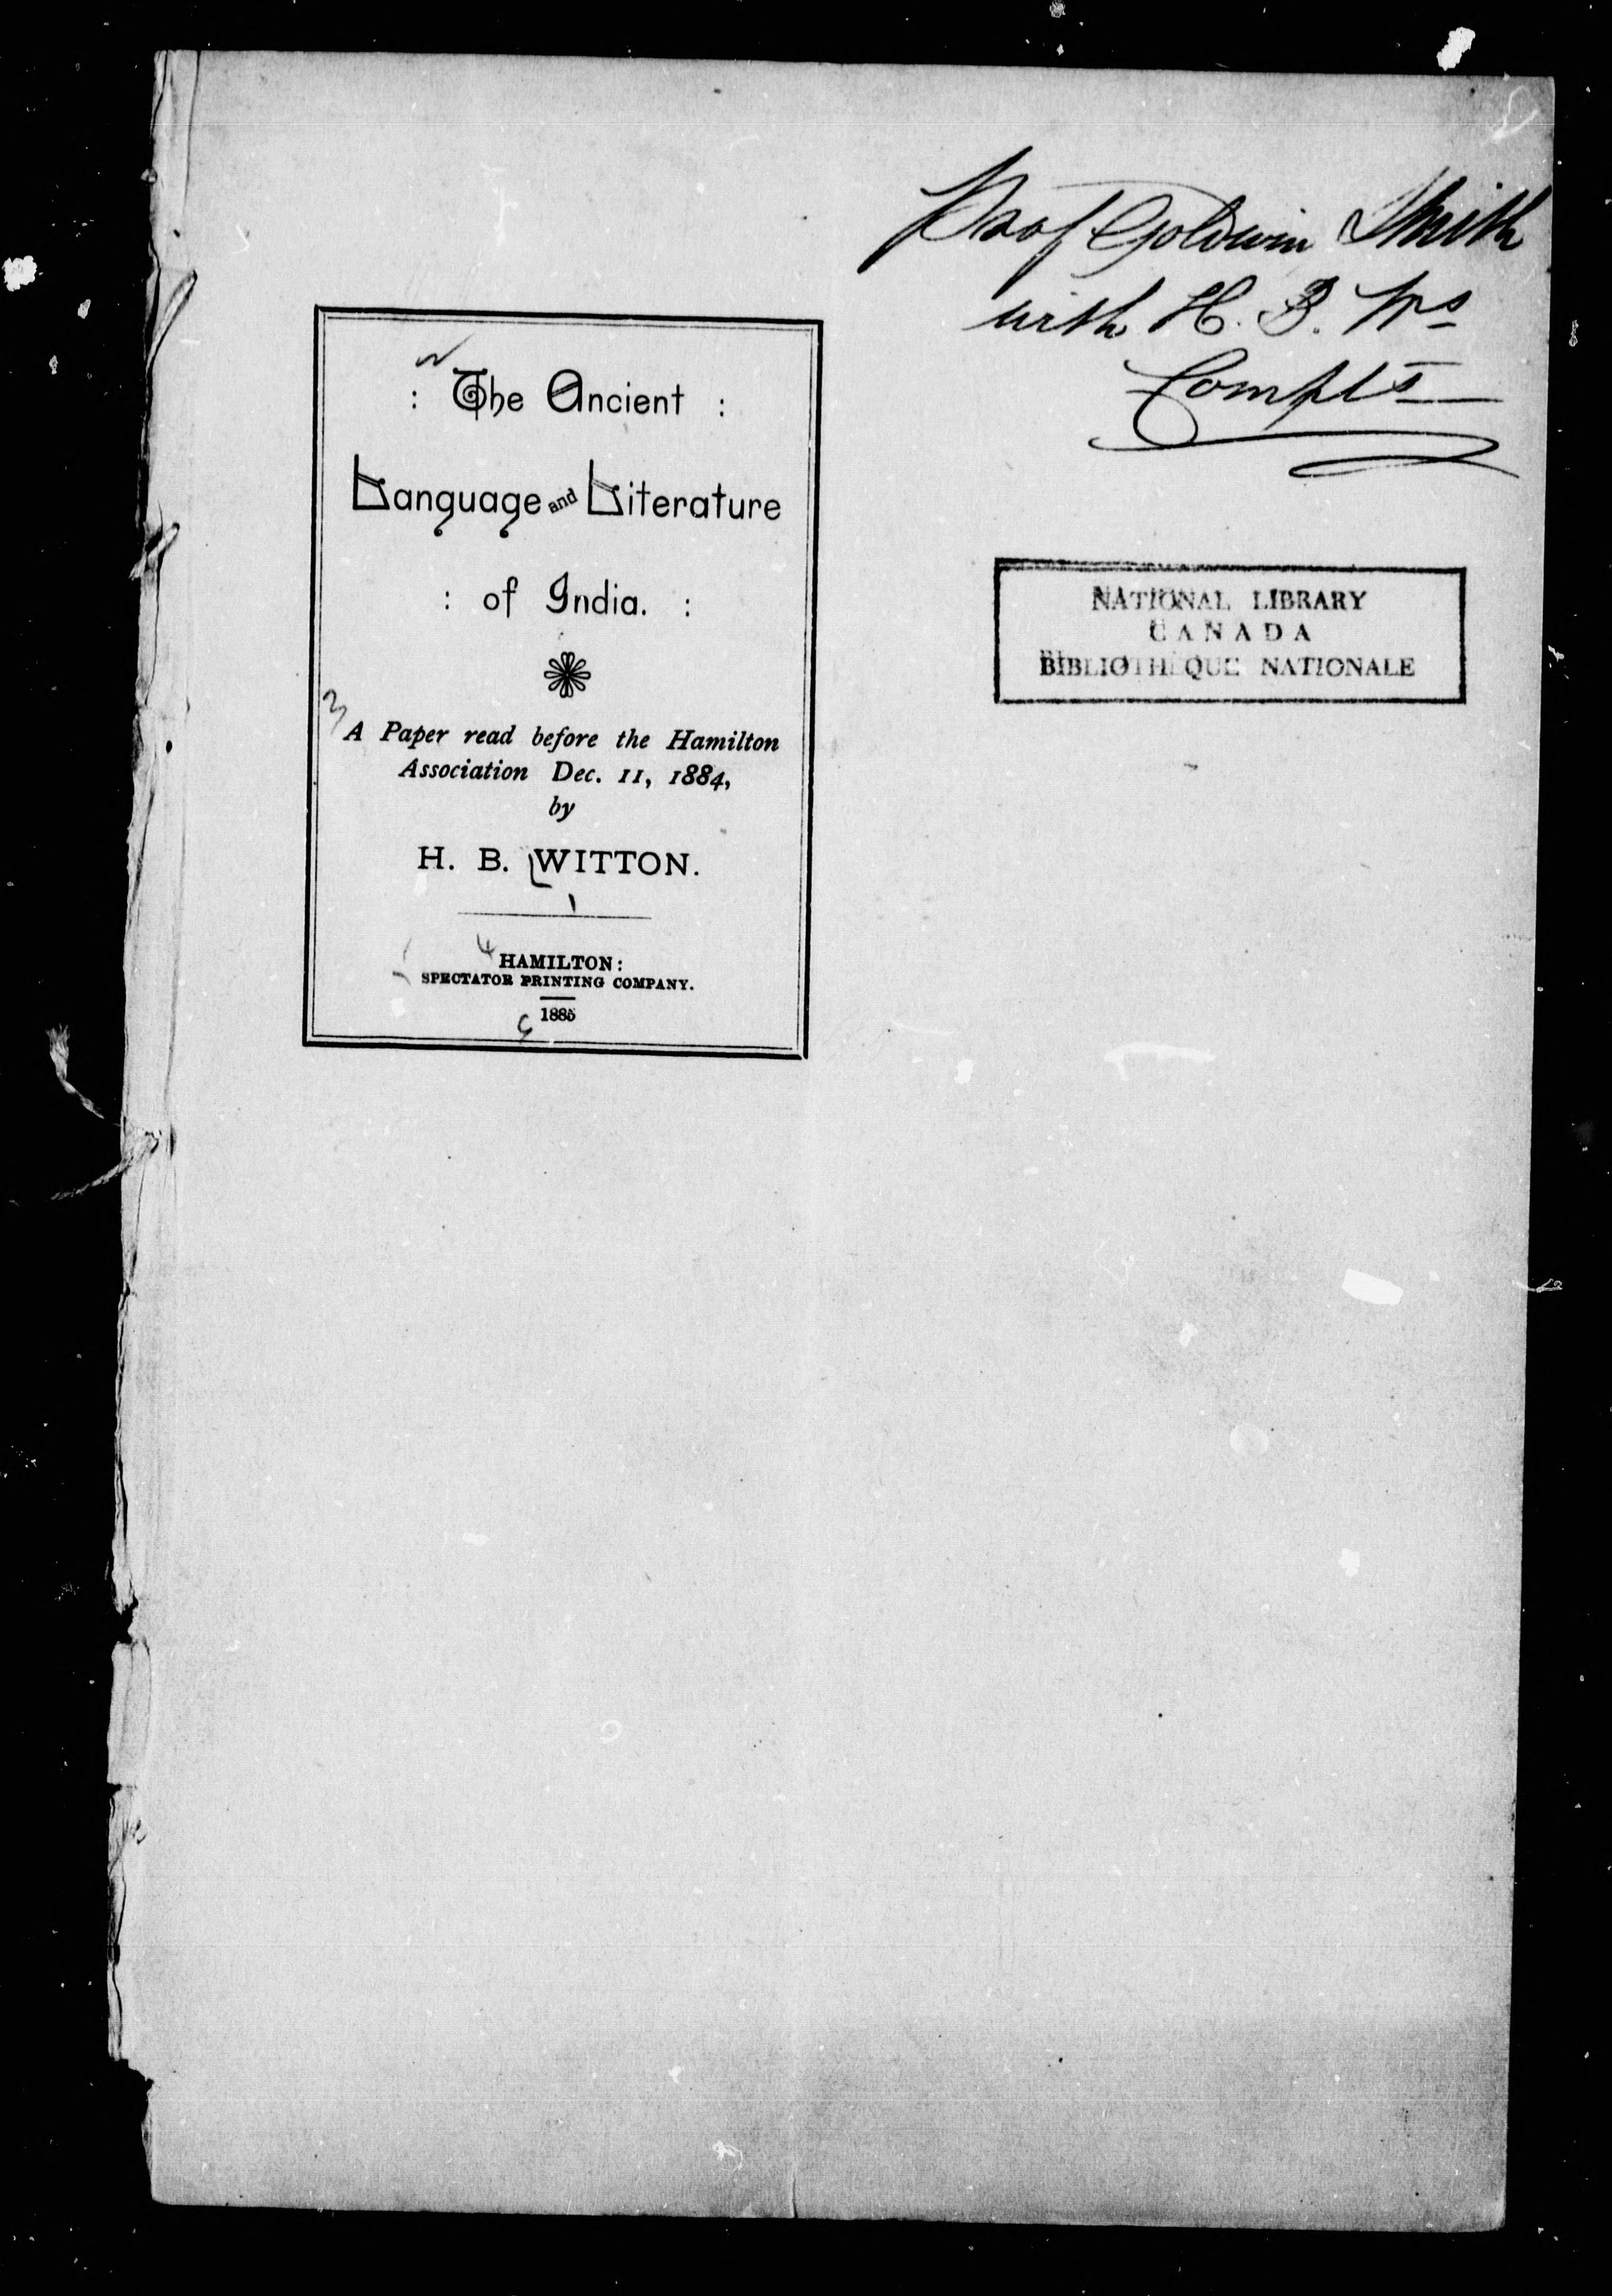 Prof Goldwin Smith
with H. B. Ws
Complts
: The Ancient :
Language and Literature
: of India. :
3
A Paper read before the Hamilton
Association Dec. 11, 1884,
by
H. B. WITTON.
1
4
HAMILTON:
SPECTATOR PRINTING COMPANY.
1885
5
NATIONAL LIBRARY
CANADA
BIBLIOTHEQUE NATIONALE